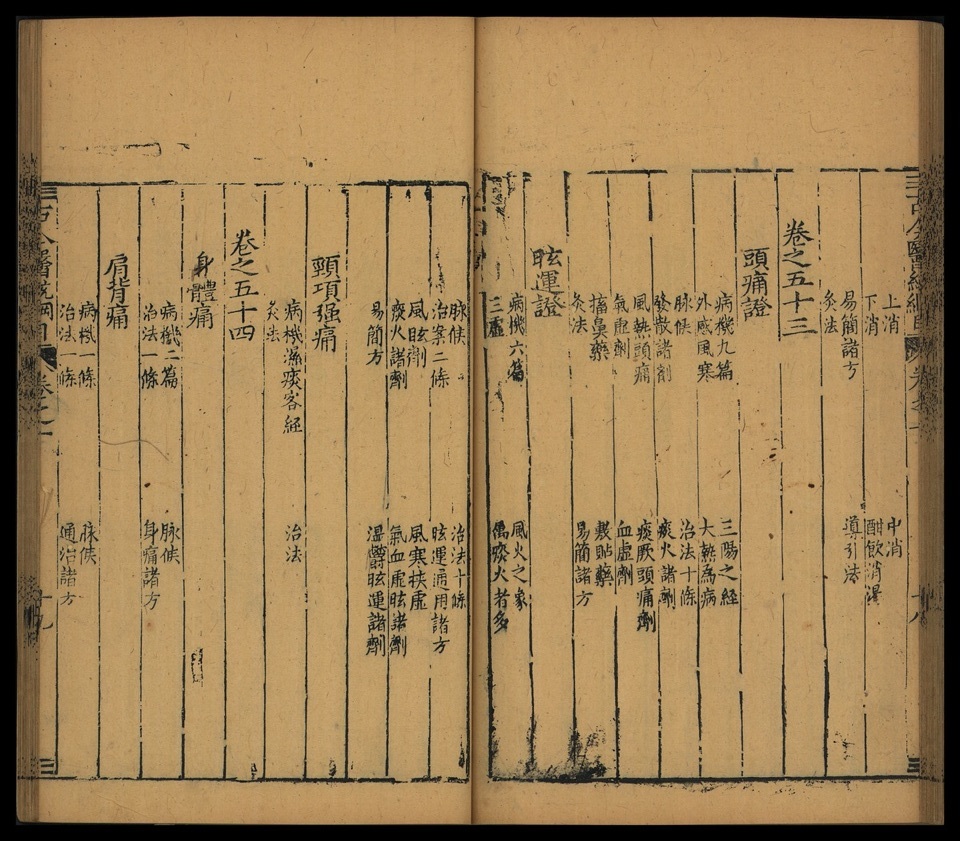 上消　中消
下消　酣飲消渴
易簡諸方　導引法
灸法
卷之五十三
頭痛證
病機九篇　三陽之經
外感風寒　大熱爲病
脉候　治法十條
發散諸劑　痰火諸劑
風熱頭痛　痰厥頭痛劑
氣虛劑　血虛劑
搐鼻藥　敷貼藥
灸法　易簡諸方
眩運證
病機六篇　風火之象
三虛　偶痰火者多
脉候　治法十條
治案二條　眩運通用諸方
風眩劑　風寒挾虛
痰火諸劑　氣血虛眩諸劑
易簡方　濕鬱眩運諸劑
頸項强痛
病機濕痰客經　治法
灸法
卷之五十四
身體痛
病機二篇　脉候
治法一條　身痛諸方
肩背痛
病機一條　脉候
治法一條　通治諸方
古今醫統綱目　卷之一　十九